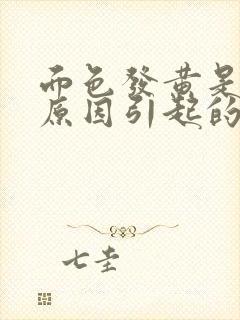 面色發黃是
原因引起的
七圭